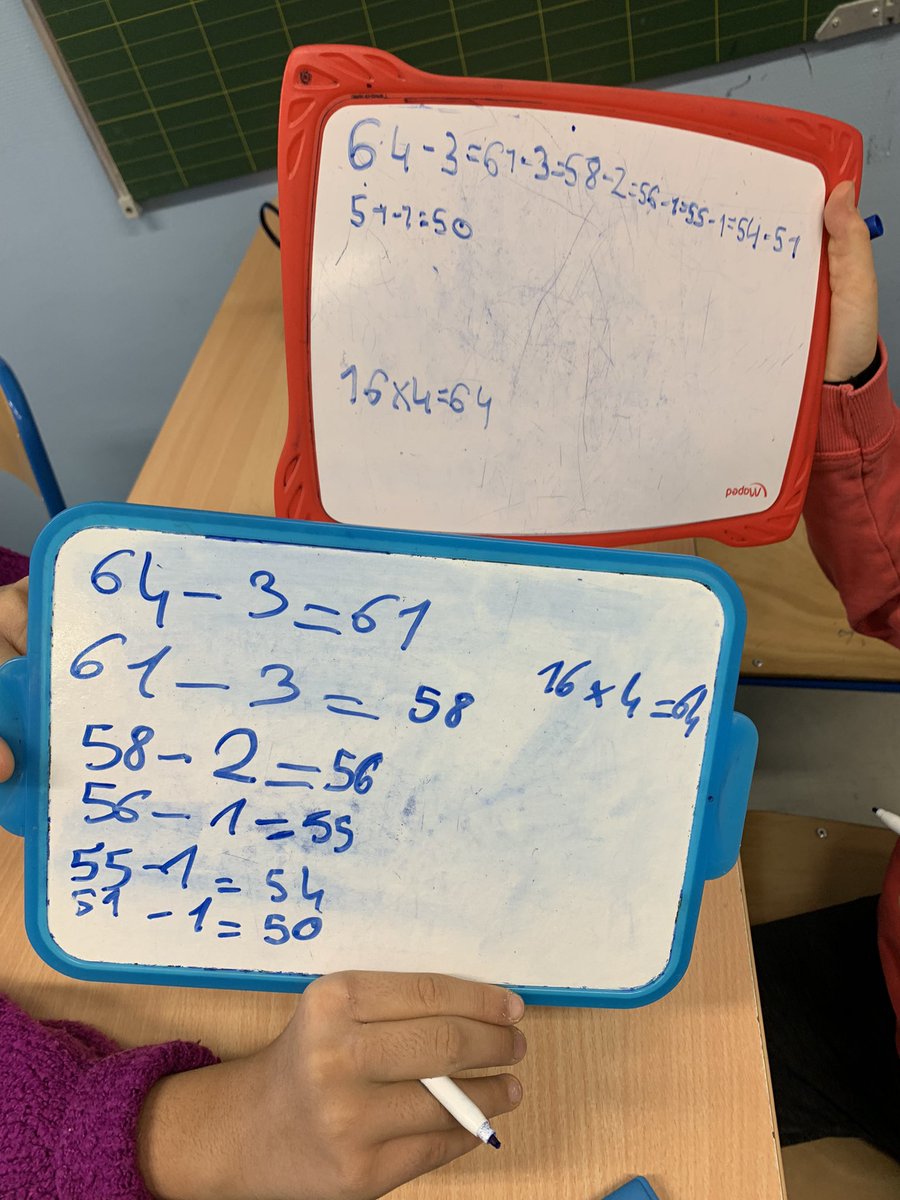 64-3=61-3=58-2=56-1=55-1=54-51
51-1=50
16×4=64
Maped
64-3=61
61-3=58
58-2=56
56-1=55
55-1=54
51-1=50
16×4=64